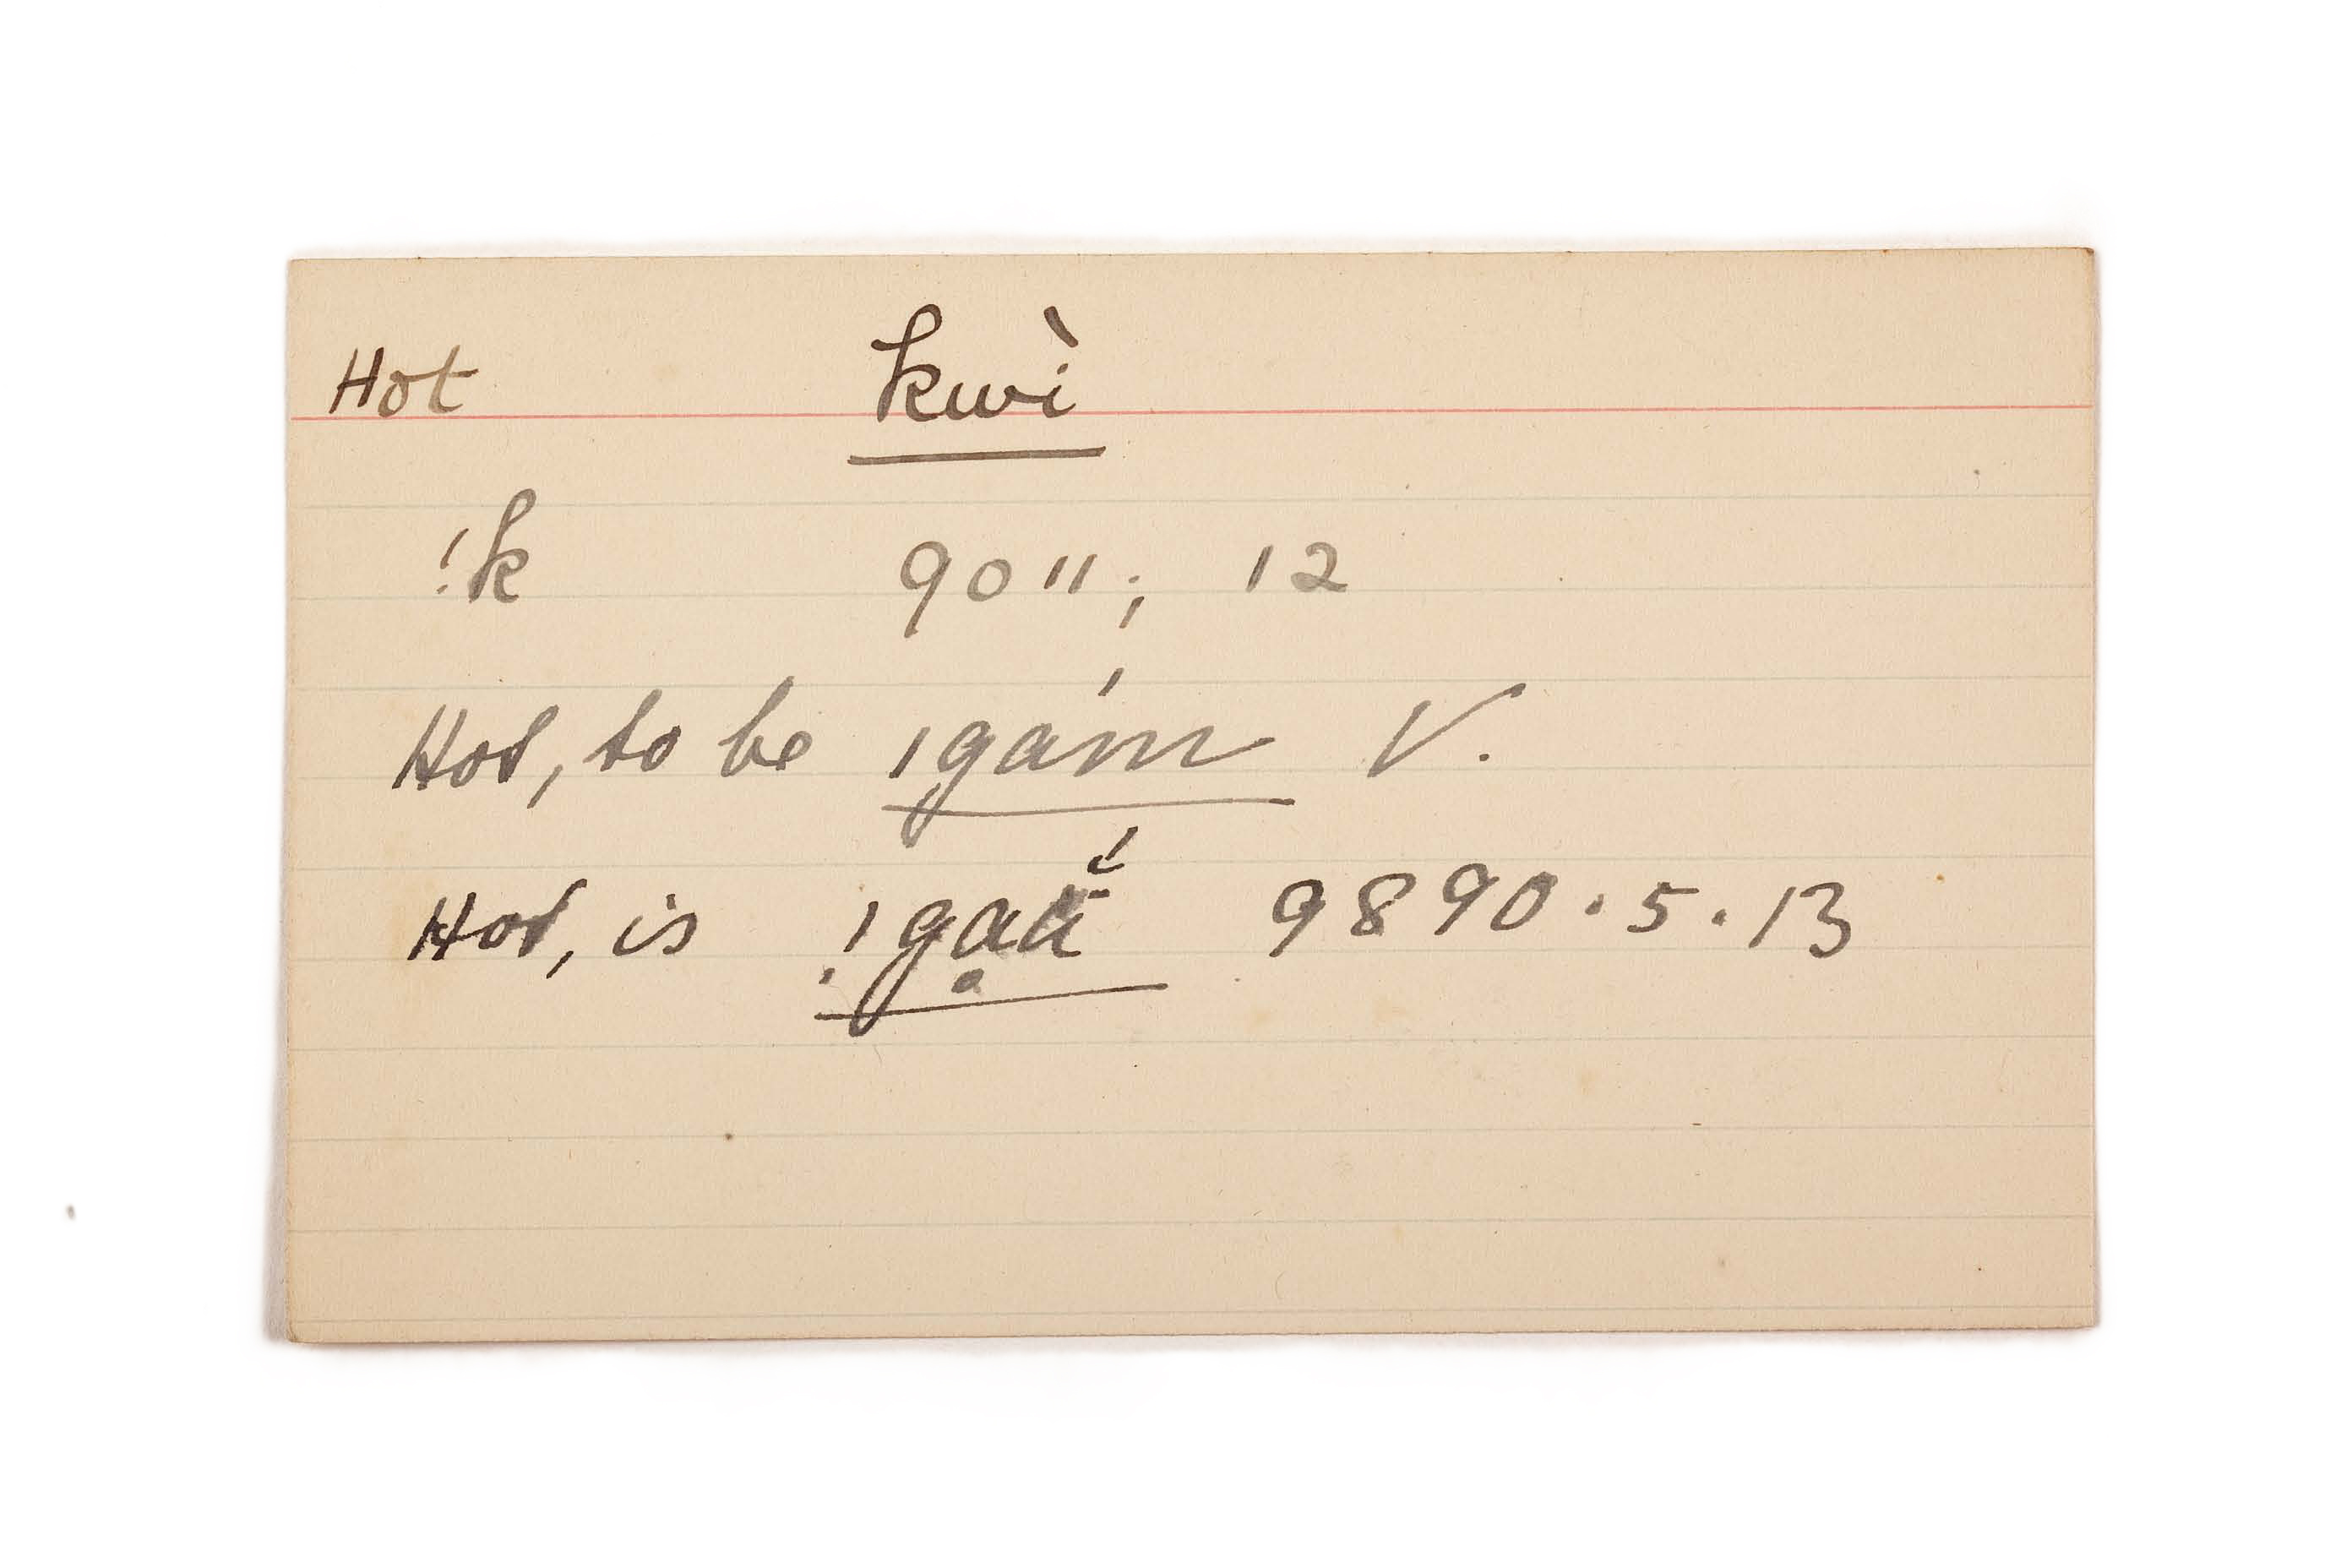 Hot kwì
!k 9011; 12
Hot, to be ıgám V.
Hot, is 9890.5.13